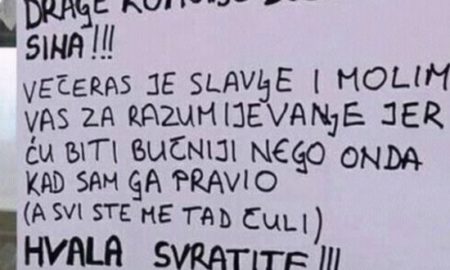 DRAGE
SINA!!!
VEČERAS JE SLAVLJE I MOLIM
VAS ZA RAZUMIJEVANJE JER
ĆU BITI BUČNIJI NEGO ONDA
KAD SAM GA PRAVIO
(A SVI STE ME TAD ČULI)
HVALA SVRATITE!!!